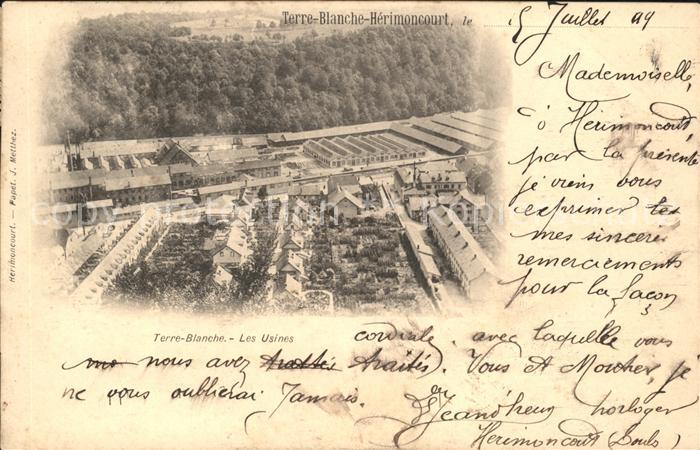 Terre-Blanche-Hérimoncourt, le 5 Juillet 99
Mademoiselle,
à Hérimoncourt,
par la présente
je viens vous
exprimer tes
mes sincères
remerciements
pour la façon
Hérimoncourt. — Papet. J. Metthez.
Terre-Blanche. - Les Usines
cordiale, avec laquelle vous
nous avez traités. Vous et Mother, je
ne vous oublierai Jamais.
horloger
Hérimoncourt (Doubs)
Copyright